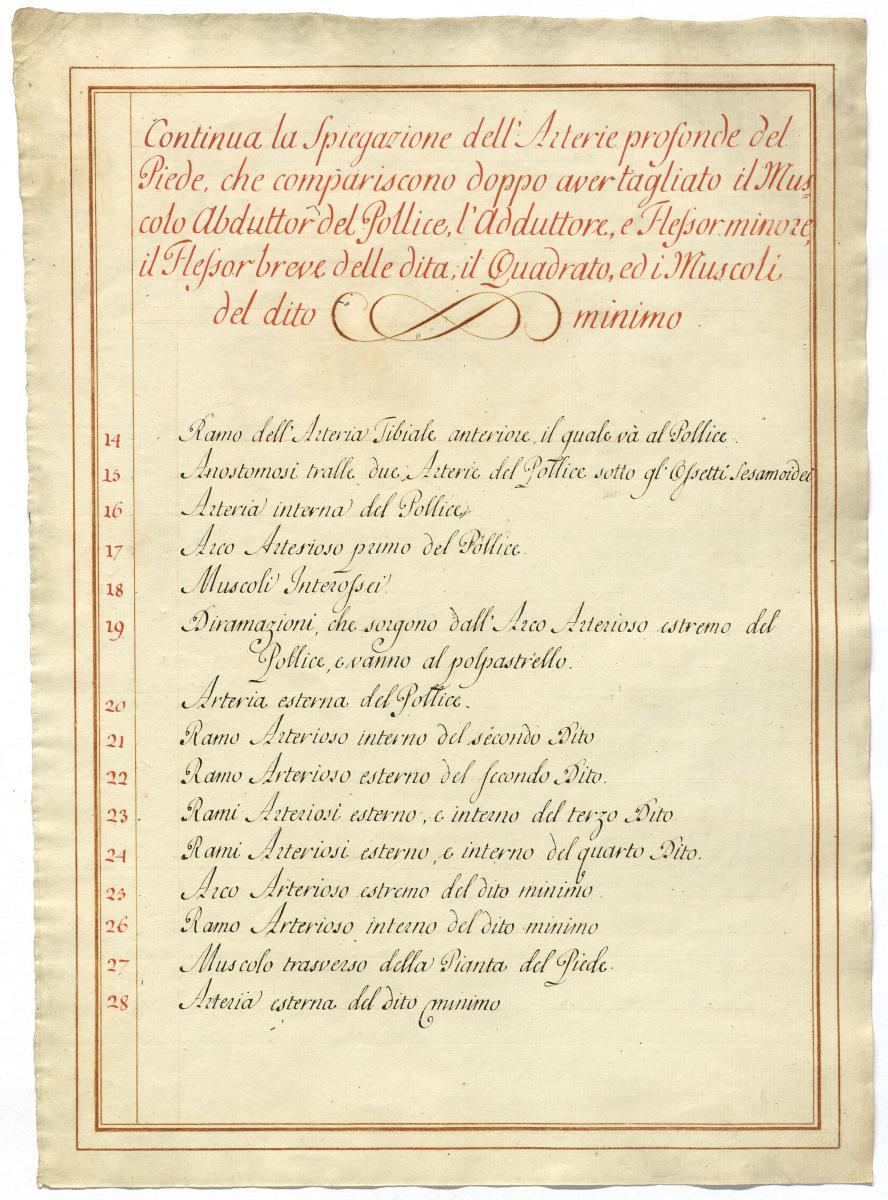 Continua la Spiegazione dell'Arterie profonde del
Piede, che compariscono doppo aver tagliato il Mus=
colo Abduttor del Pollice, l'Adduttore, e Flessor minore,
il Flessor breve delle dita, il Quadrato, ed i Muscoli
del dito minimo
14 Ramo dell'Arteria Tibiale anteriore, il quale và al Pollice.
15 Anostomosi tralle due Arterie del Pollice sotto gl'Ossetti Sesamoidei
16 Arteria interna del Pollice.
17 Arco Arterioso primo del Pollice.
18 Muscoli Interossei
19 Diramazioni, che sorgono dall'Arco Arterioso estremo del
Pollice, e vanno al polpastrello.
20 Arteria esterna del Pollice.
21 Ramo Arterioso interno del secondo Dito
22 Ramo Arterioso esterno del secondo Dito.
23 Rami Arteriosi esterno, e interno del terzo Dito
24 Rami Arteriosi esterno, e interno del quarto Dito.
25 Arco Arterioso estremo del dito minimo
26 Ramo Arterioso interno del dito minimo
27 Muscolo trasverso della Pianta del Piede.
28 Arteria esterna del dito minimo